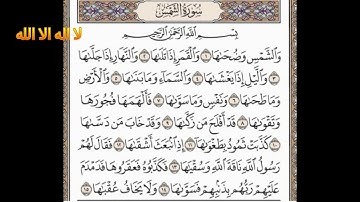 سُورَةُ الشَّمْسِ
لا اله الا الله
بِسْمِ اللَّهِ الرَّحْمَٰنِ الرَّحِيمِ
وَالشَّمْسِ وَضُحَىٰهَا ١ وَالْقَمَرِ إِذَا تَلَىٰهَا ٢ وَالنَّهَارِ إِذَا جَلَّىٰهَا
٣ وَاللَّيْلِ إِذَا يَغْشَىٰهَا ٤ وَالسَّمَاءِ وَمَا بَنَىٰهَا ٥ وَالْأَرْضِ
وَمَا طَحَىٰهَا ٦ وَنَفْسٍ وَمَا سَوَّىٰهَا ٧ فَأَلْهَمَهَا فُجُورَهَا
وَتَقْوَىٰهَا ٨ قَدْ أَفْلَحَ مَن زَكَّىٰهَا ٩ وَقَدْ خَابَ مَن دَسَّىٰهَا
١٠ كَذَّبَتْ ثَمُودُ بِطَغْوَىٰهَا ١١ إِذِ انبَعَثَ أَشْقَىٰهَا ١٢ فَقَالَ لَهُمْ
رَسُولُ اللَّهِ نَاقَةَ اللَّهِ وَسُقْيَىٰهَا ١٣ فَكَذَّبُوهُ فَعَقَرُوهَا فَدَمْدَمَ
عَلَيْهِمْ رَبُّهُم بِذَنبِهِمْ فَسَوَّىٰهَا ١٤ وَلَا يَخَافُ عُقْبَىٰهَا ١٥